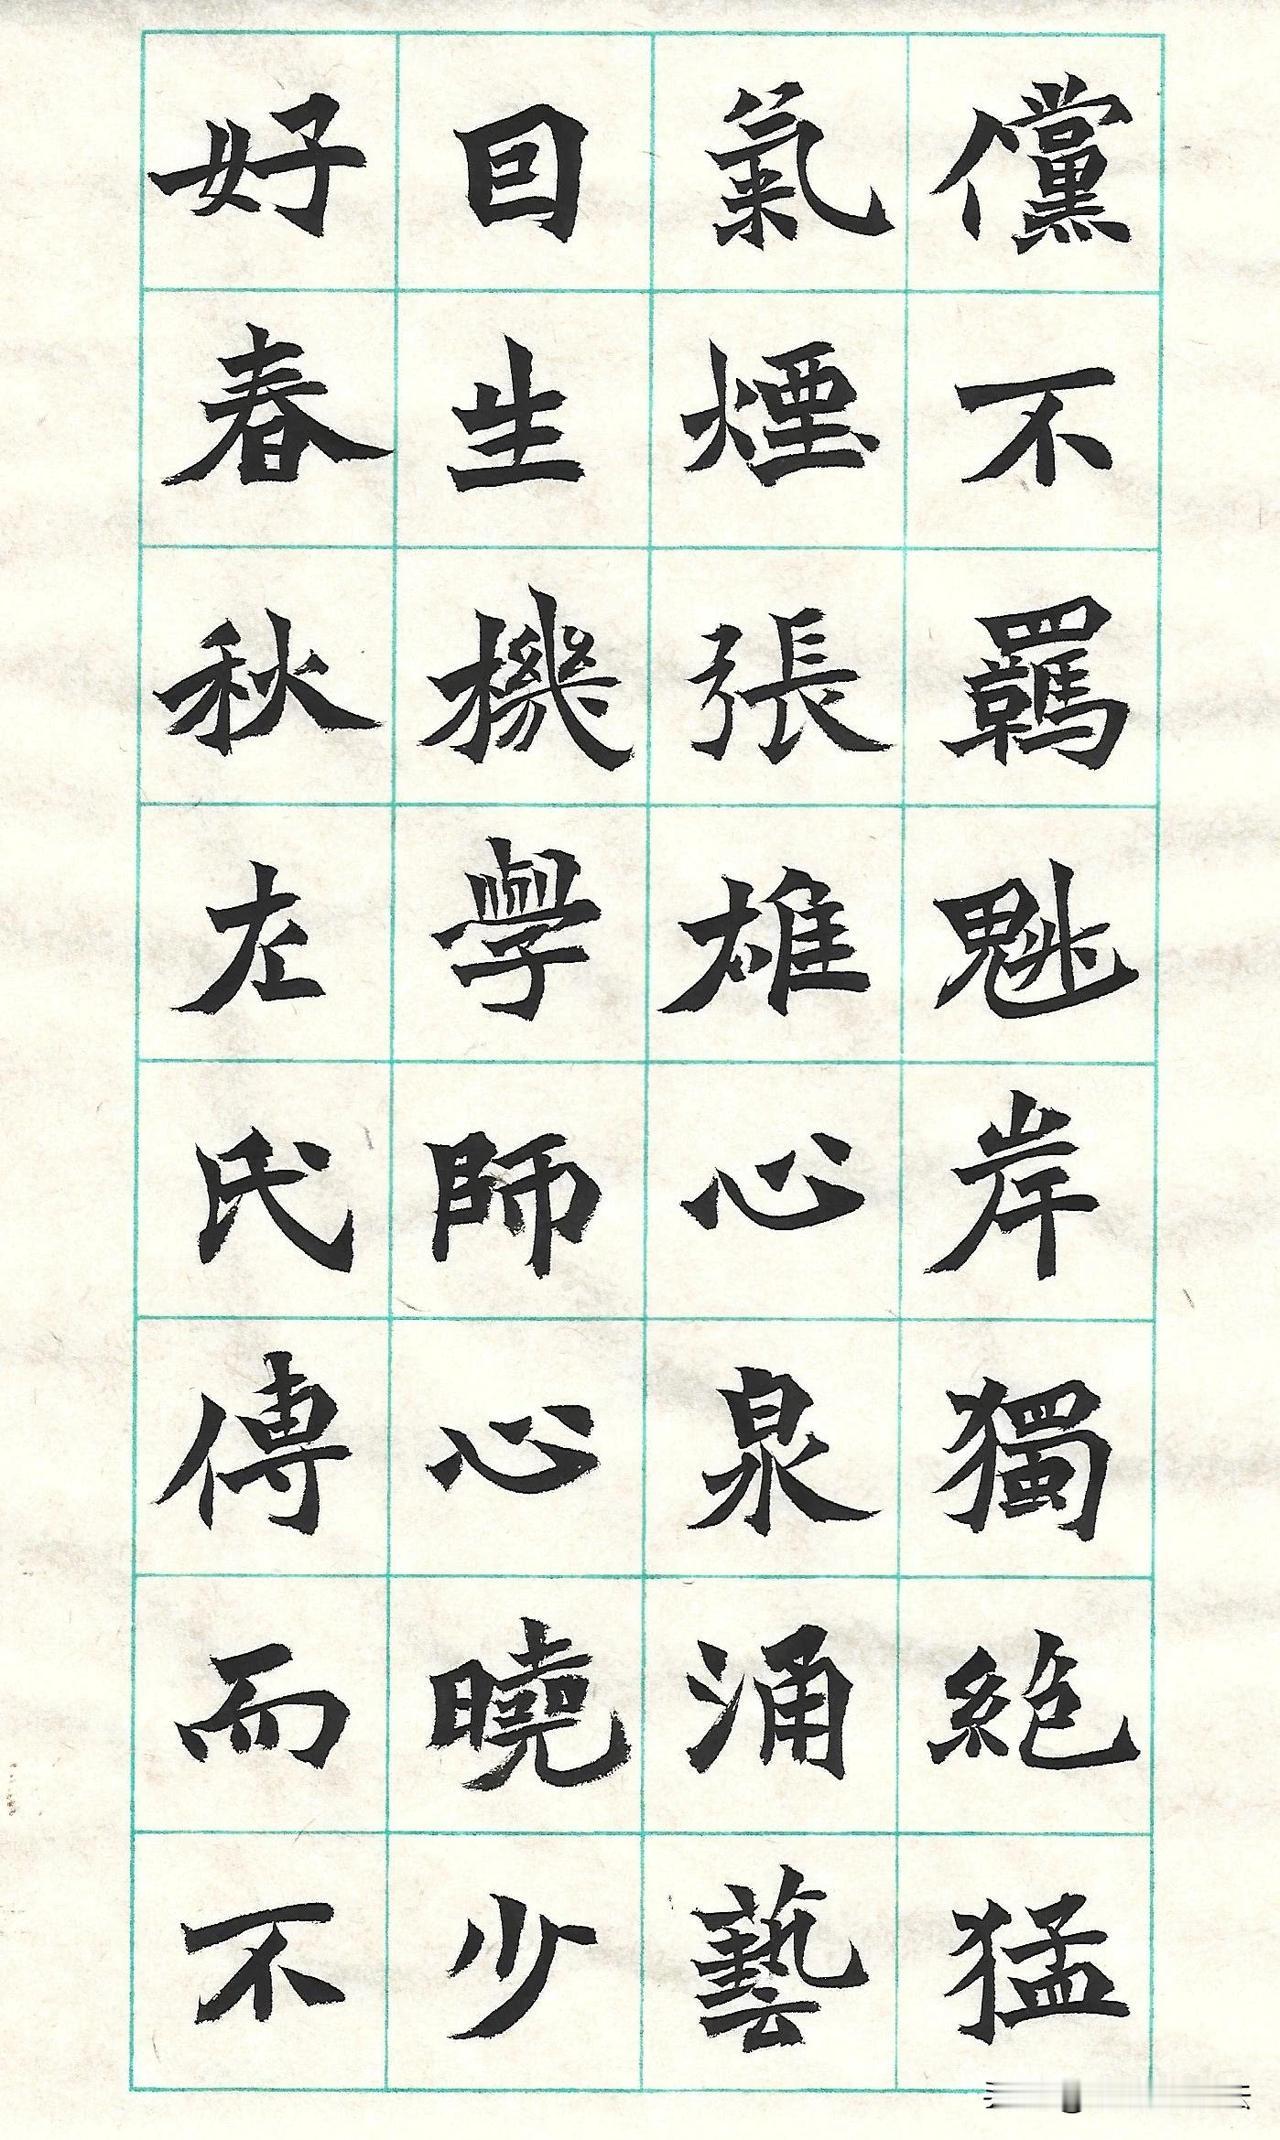 儻不羈魁岸獨絶猛
氣煙張雄心泉涌藝
回生機學師心曉少
好春秋左氏傳而不